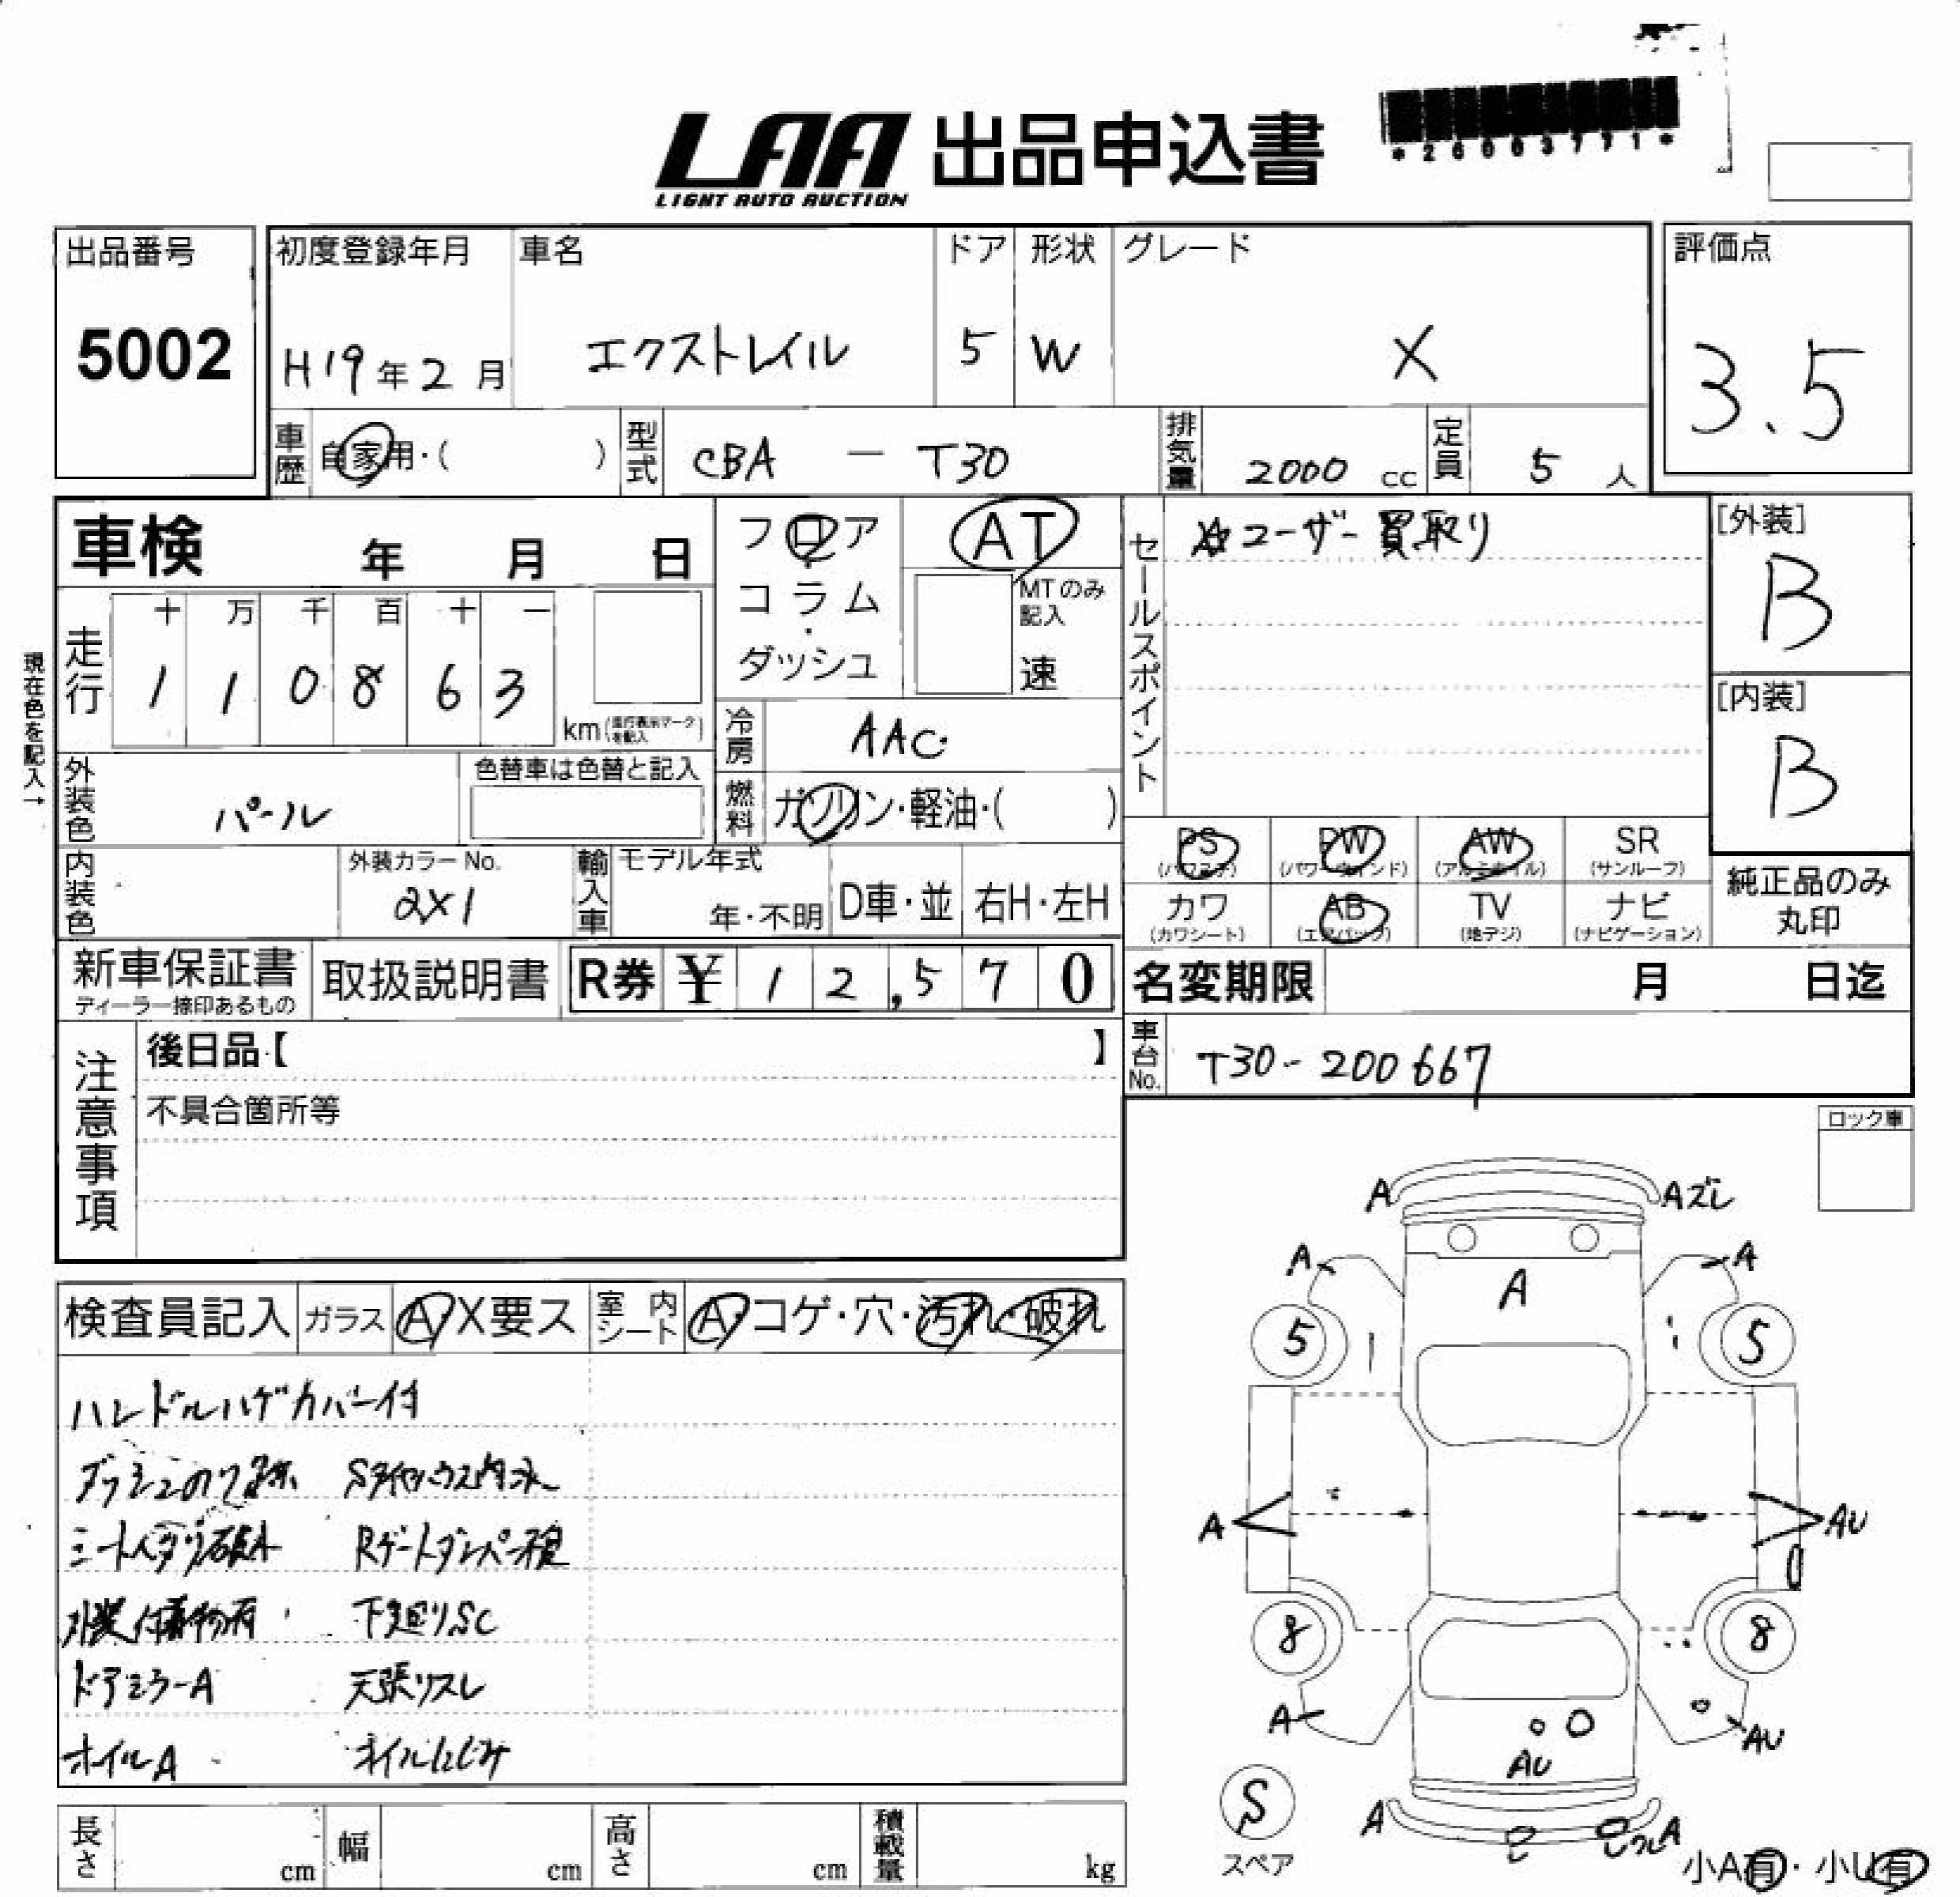 LAA 出品申込書
LIGHT AUTO AUCTION
*26003771*
出品番号
5002
初度登録年月
H19年2月
車名
エクストレイル
ドア
5
形状
W
グレード
X
評価点
3.5
車歴
自家用・( )
型式
CBA - T30
排気量
2000 cc
定員
5 人
車検 年 月 日
フロア
コラム
・
ダッシュ
AT
MTのみ記入
速
セールスポイント
☆ユーザー買取り
[外装]
B
[内装]
B
現在色を記入→
走行
十 万 千 百 十 一
1 1 0 8 6 3
km(走行表示マークを記入)
冷房
AAC
燃料
ガソリン・軽油・( )
外装色
パール
色替車は色替と記入
内装色
外装カラーNo.
2X1
輸入車
モデル年式
年・不明
D車・並
右H・左H
PS
(パワステ)
PW
(パワーウィンド)
AW
(アルミホイル)
SR
(サンルーフ)
カワ
(カワシート)
AB
(エアバッグ)
TV
(地デジ)
ナビ
(ナビゲーション)
純正品のみ
丸印
新車保証書
ディーラー捺印あるもの
取扱説明書
R券 ¥ 1 2,5 7 0
名変期限 月 日迄
車台No.
T30-200667
注意事項
後日品【 】
不具合箇所等
ロック車
検査員記入
ガラス
A X要ス
室内シート
A・コゲ・穴・汚れ・破れ
ハンドルハゲカバー付
外装付着物有
下廻りSC
ドアミラーA
天張リスレ
ホイルA
オイルにじみ
A
Aズレ
A
A
A
5
5
A
AU
8
8
A
AU
AU
S
スペア
A
A
小A有・小U有
長さ cm
幅 cm
高さ cm
積載量 kg